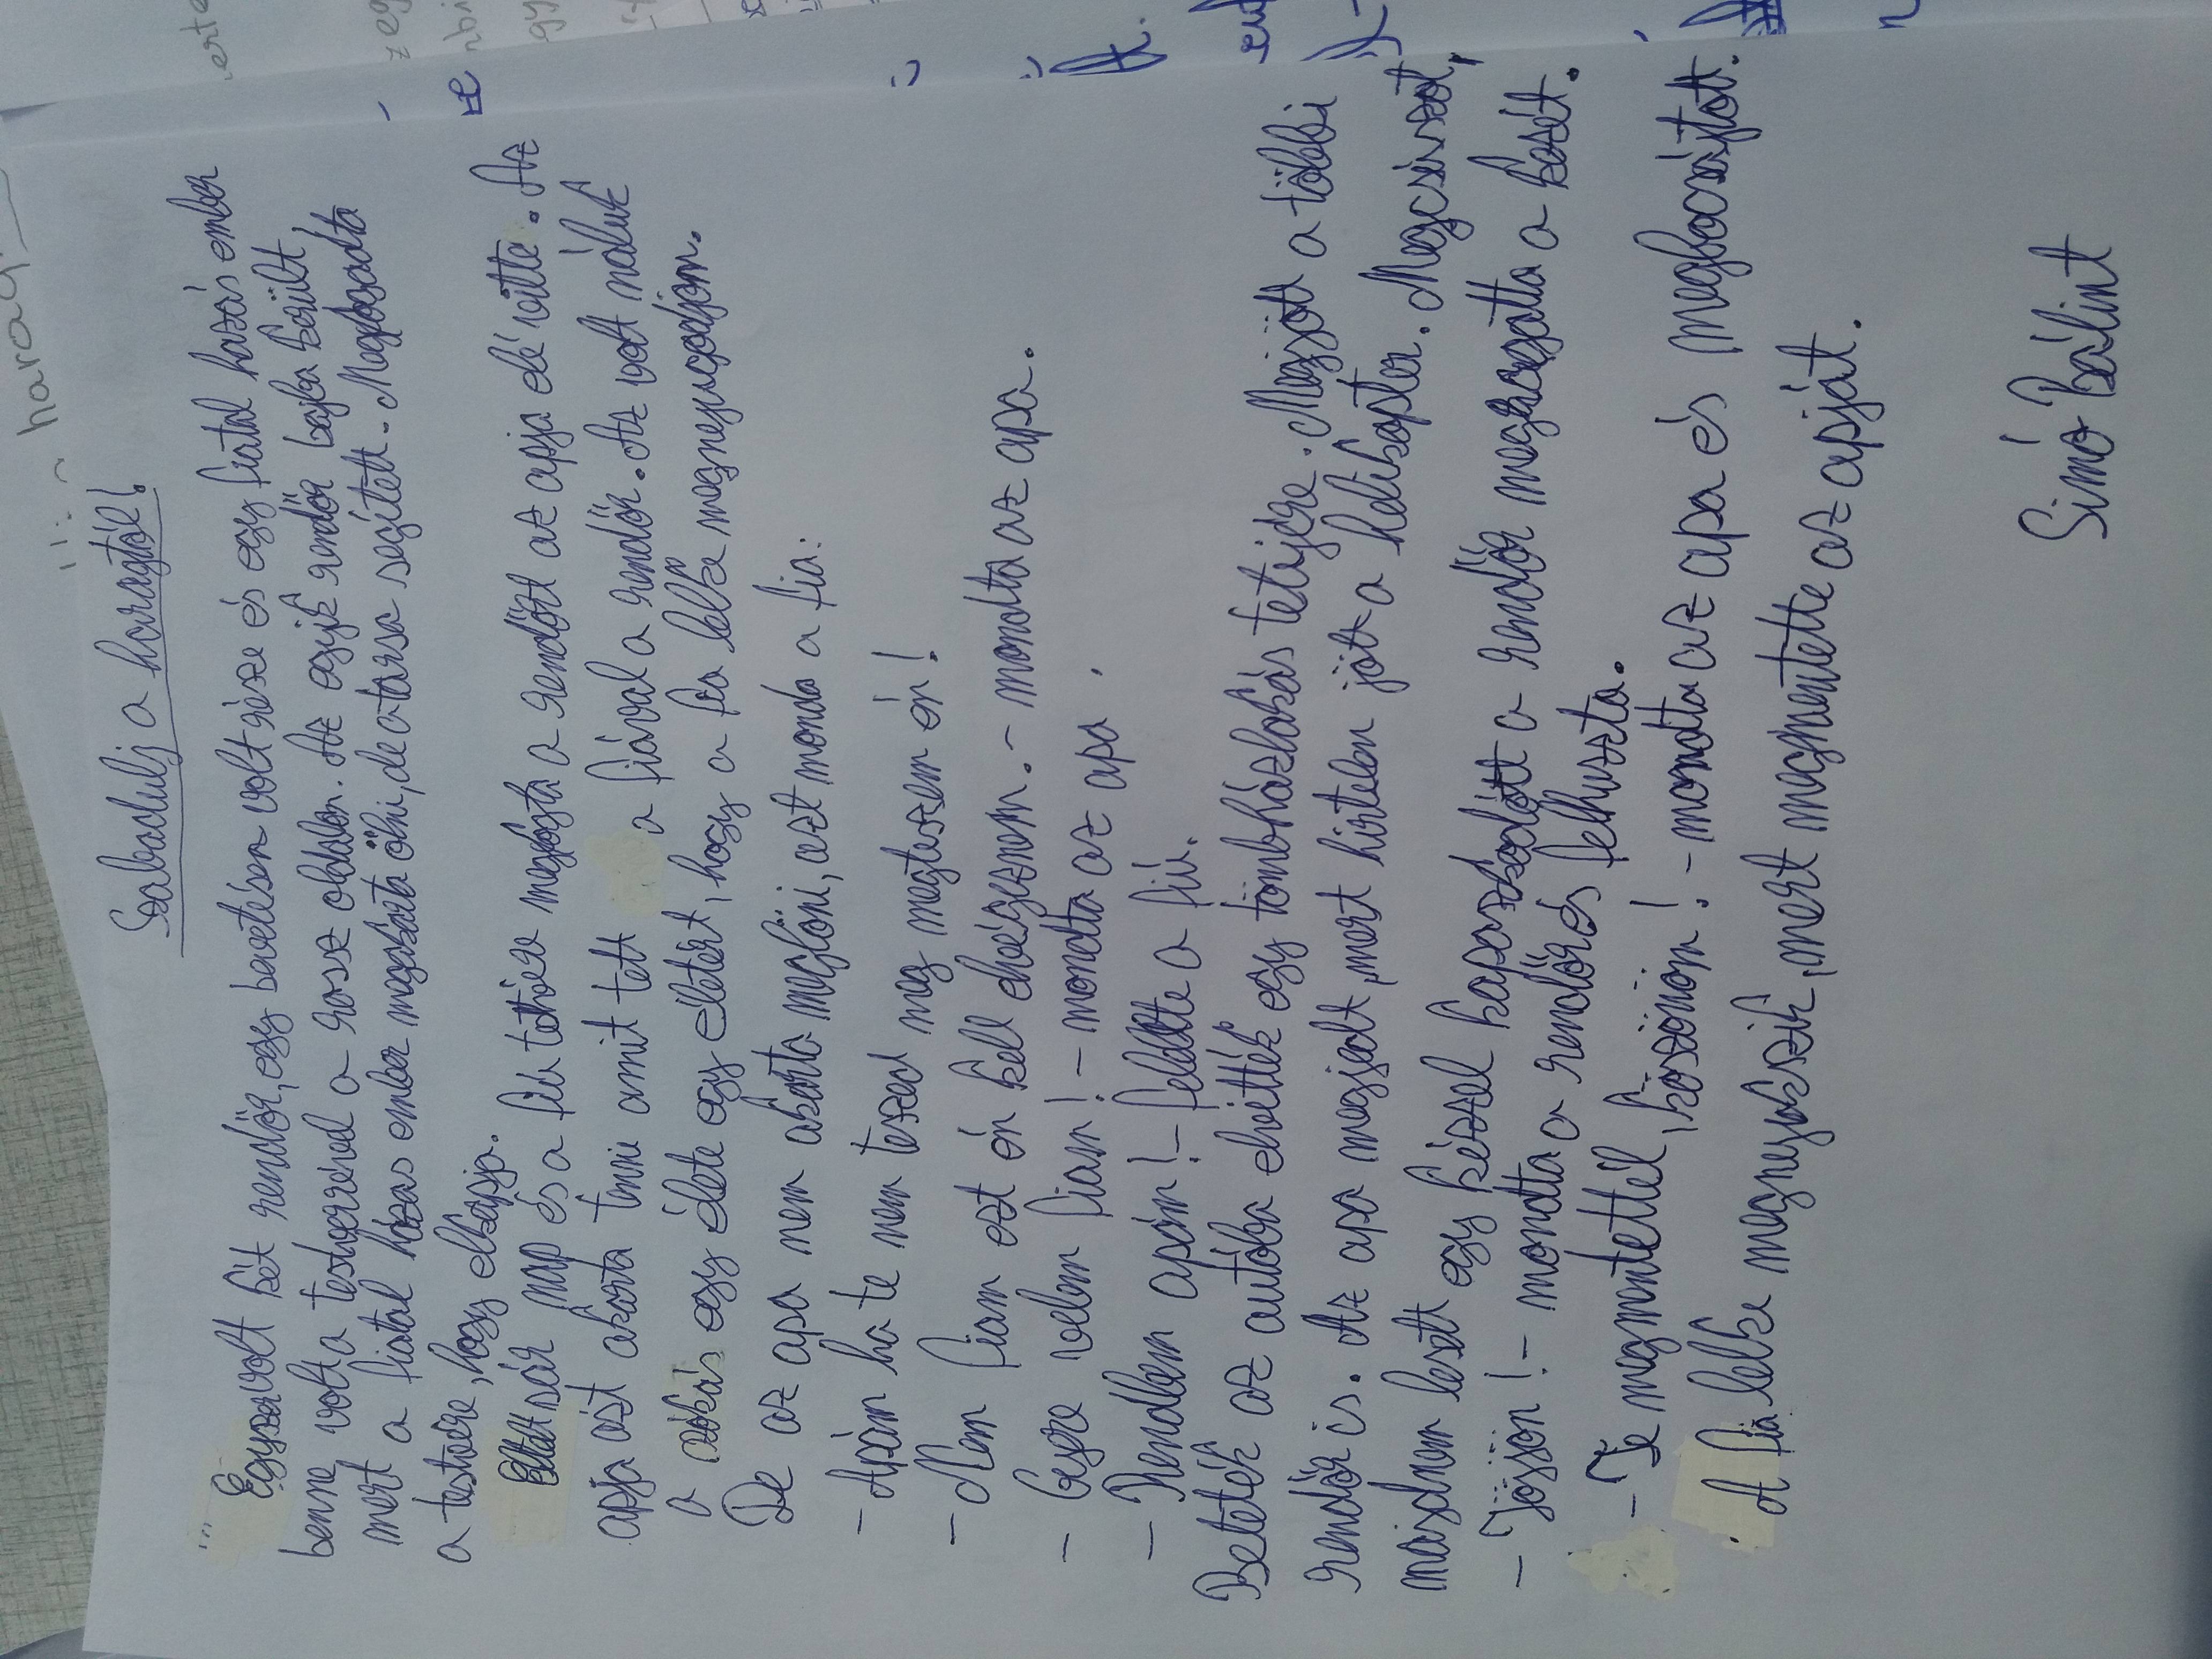 Szabadulj a haragtól!
Egyszavolt két rendőr, egy bevetésen volt része és egy fiatal házás ember
benne volt a testvérével a rossz oldalon. Az egyik rendőr bajba került,
mert a fiatal házas ember megakarta ölni, de a társa segített. Megbosszulta
a testvére, hogy elkapja.
Eltelt pár nap és a fiú tetthére megfogta a rendőrt az apja elé vitte. Az
apja azt akarta tenni amit tett a fiával a rendőr. Az volt náluk
a szokás egy élete egy életért, hogy a fia lelke megnyugodjon.
De az apa nem akarta meglőni, azt monda a fia:
- Apám ha te nem teszed meg megteszem én!
- Nem fiam ezt én kell elvégeznem. - mondta az apa.
- Gyere velem fiam! - mondta az apa.
- Rendben apám! - felelte a fiú.
Beteték az autóba elvitték egy tömbházlakás tetejére. Megjött a többi
rendőr is. Az apa megijedt, mert hirtelen jött a helikopter. Megcsúszot,
majdnem leset egy kézzel kapaszkodott a rendőr megragatta a kezét.
- Jöjjön! - mondta a rendőr és felhuszta.
- Te megmentettél, köszönöm! - mondta az apa és megbocsájtott.
A fia lelke megnyukszik, mert megmentette az apját.
Simó Bálint
harag